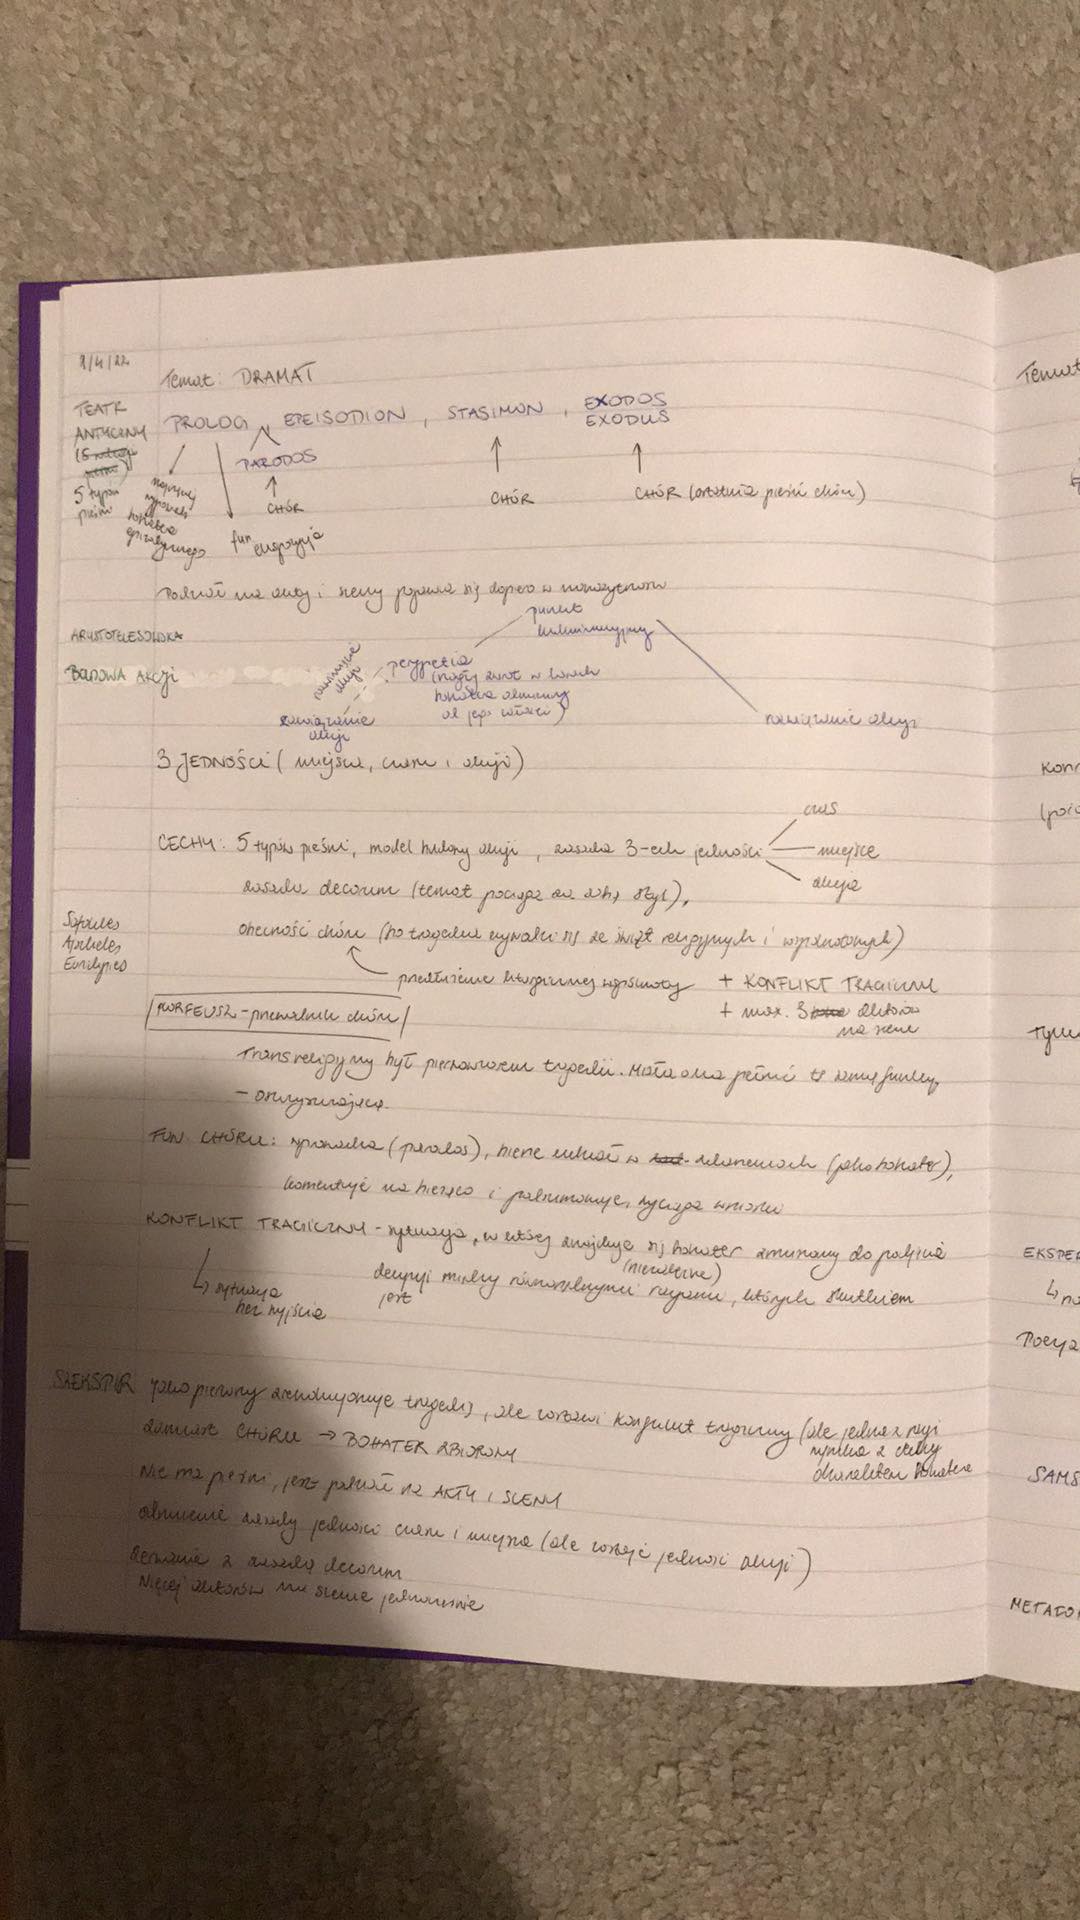 9/4/22
Temat: DRAMAT
TEATR
ANTYCZNY
5 typów
pieśni
PROLOG, EPEISODION, STASIMON, EXODOS
EXODUS
PARODOS
CHÓR
CHÓR
CHÓR (ostatnia pieśń chóru)
bohatera
fun. ekspozycja
Podział na akty i sceny pojawia się dopiero w nowożytności
ARYSTOTELESOWSKA
BUDOWA AKCJI
punkt
kulminacyjny
perypetia
(nagły zwrot w losach
bohatera
od jego
rozwinięcie
akcji
zawiązanie
akcji
rozwiązanie akcji
3 JEDNOŚCI (miejsca, czasu i akcji)
CECHY: 5 typów pieśni, model budowy akcji, zasada 3-ech jedności
czas
miejsce
akcja
zasada decorum (temat pociąga za sobą styl),
obecność chóru (bo tragedia wywodzi się ze świąt religijnych i
Sofokles
Eurypides
przedłużenie liturgicznej wspólnoty
+ KONFLIKT TRAGICZNY
+ max. 3 aktorów
na scenie
- przewodnik chóru
Trans religijny był pierwowzorem tragedii. Miała ona pełnić tę samą funkcję
- oczyszczającą.
FUN. CHÓRU: wprowadza (parodos), bierze udział w zdarzeniach (jako bohater),
komentuje na bieżąco i podsumowuje, wyciąga wnioski
KONFLIKT TRAGICZNY - sytuacja, w której znajduje się bohater zmuszony do podjęcia
decyzji między równorzędnymi racjami, których skutkiem
jest
↳ sytuacja
bez wyjścia
SZEKSPIR jako pierwszy zrewolucjonizuje tragedię, ale zostawi konflikt tragiczny (ale jedna z racji
wynika z cechy
charakteru bohatera
zamiast CHÓRU → BOHATER ZBIOROWY
Nie ma pieśni, jest podział na AKTY I SCENY
zasady jedności czasu i miejsca (ale zostaje jedność akcji)
zerwanie z zasadą decorum
Więcej aktorów na scenie jednocześnie
Temat
EKSPER
SAMS